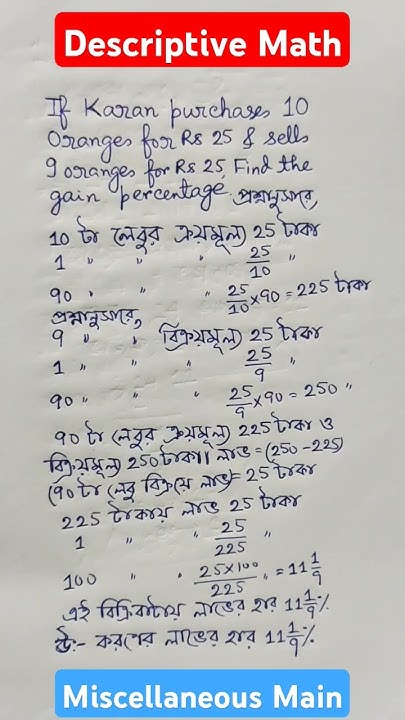 Descriptive Math
If Karan purchases 10
Oranges for Rs 25 & sells
9 oranges for Rs 25, Find the
gain percentage. প্রশ্নানুসারে,
10 টা লেবুর ক্রয়মূল্য 25 টাকা
1 " " " 25/10 "
90 " " " 25/10 × 90 = 225 টাকা
প্রশ্নানুসারে,
9 " " বিক্রয়মূল্য 25 টাকা
1 " " " 25/9 "
90 " " " 25/9 × 90 = 250 "
90 টা লেবুর ক্রয়মূল্য 225 টাকা ও
বিক্রয়মূল্য 250 টাকা।। লাভ = (250 - 225)
(90 টা লেবু বিক্রয়ে লাভ) = 25 টাকা
225 টাকায় লাভ 25 টাকা
1 " " 25/225 "
100 " " 25×100/225 " = 11 1/9
এই বিক্রিবাটায় লাভের হার 11 1/9 %
উঃ- করণের লাভের হার 11 1/9 %
Miscellaneous Main